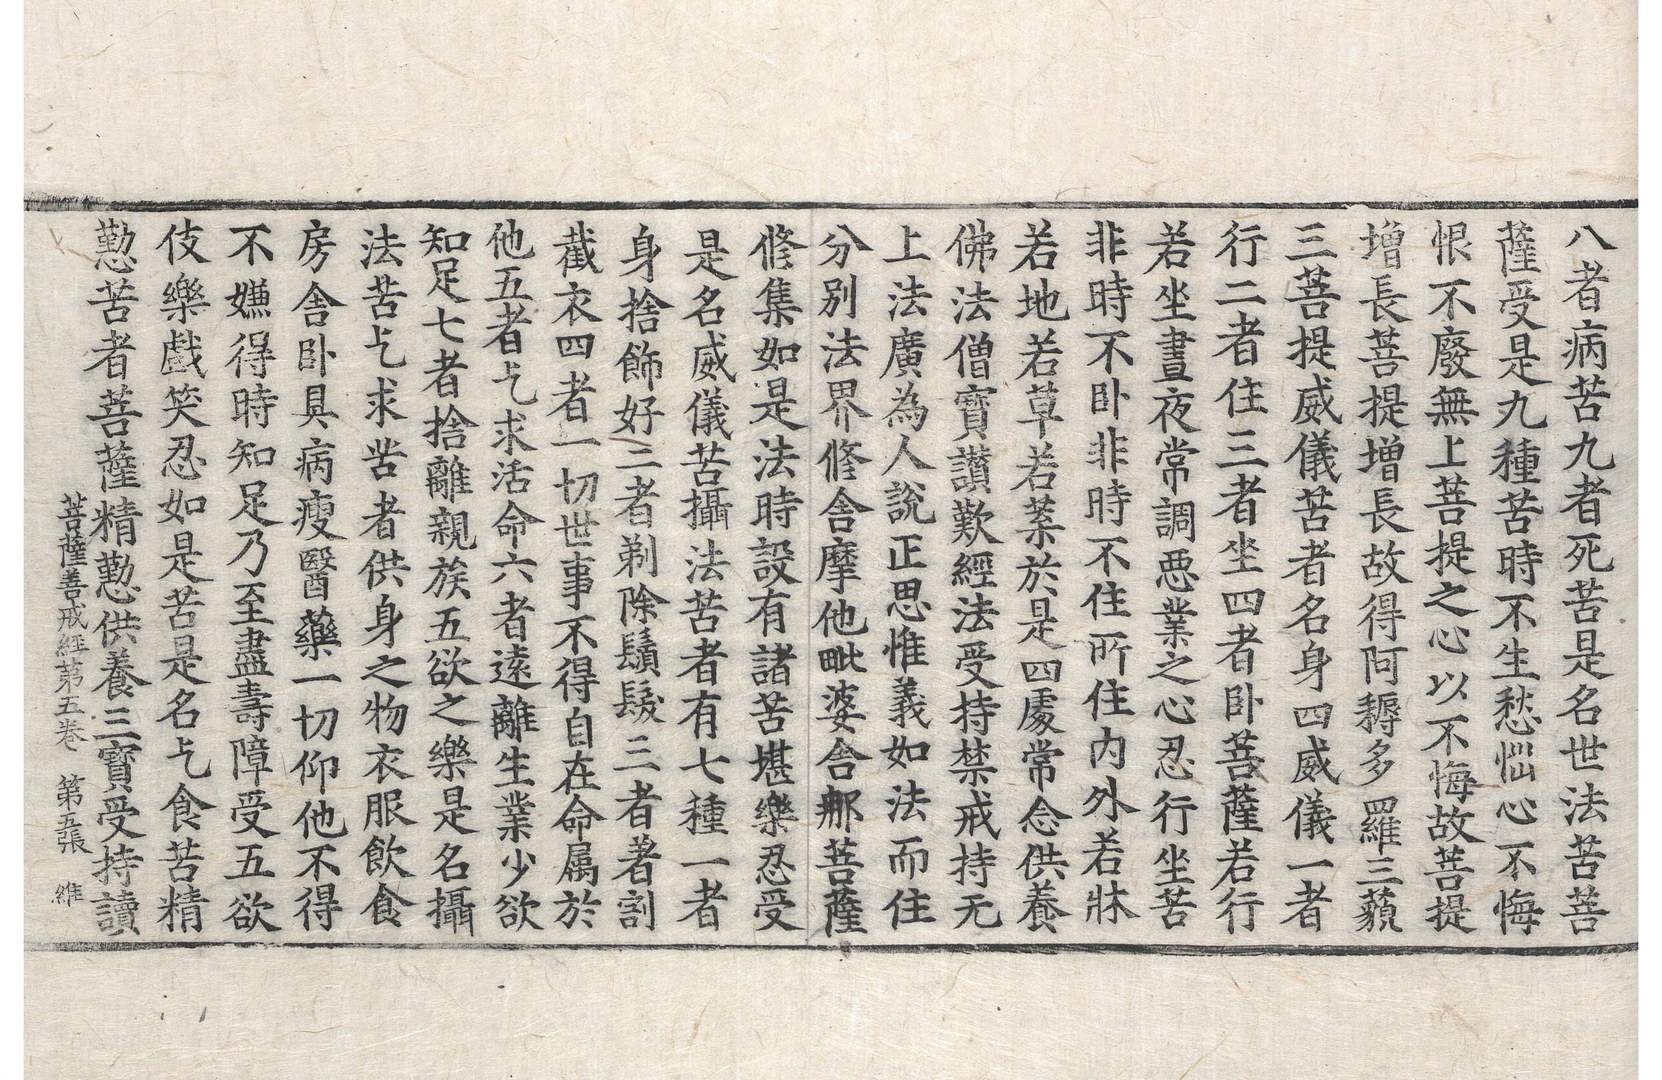 八者病苦九者死苦是名世法苦菩
薩受是九種苦時不生愁惱心不悔
恨不廢無上菩提之心以不悔故菩提
增長菩提增長故得阿耨多羅三藐
三菩提威儀苦者名身四威儀一者
行二者住三者坐四者卧菩薩若行
若坐晝夜常調惡業之心忍行坐苦
非時不卧非時不住所住內外若牀
若地若草若葉於是四處常念供養
佛法僧寶讃歎經法受持禁戒持无
上法廣為人說正思惟義如法而住
分別法界修舍摩他毗婆舍那菩薩
修集如是法時設有諸苦堪樂忍受
是名威儀苦攝法苦者有七種一者
身捨飾好二者剃除鬚髮三者著割
截衣四者一切世事不得自在命属於
他五者乞求活命六者遠離生業少欲
知足七者捨離親族五欲之樂是名攝
法苦乞求苦者供身之物衣服飲食
房舍卧具病瘦醫藥一切仰他不得
不嫌得時知足乃至盡壽障受五欲
伎樂戲笑忍如是苦是名乞食苦精
懃苦者菩薩精懃供養三寶受持讀
菩薩善戒經第五卷　第五張　維